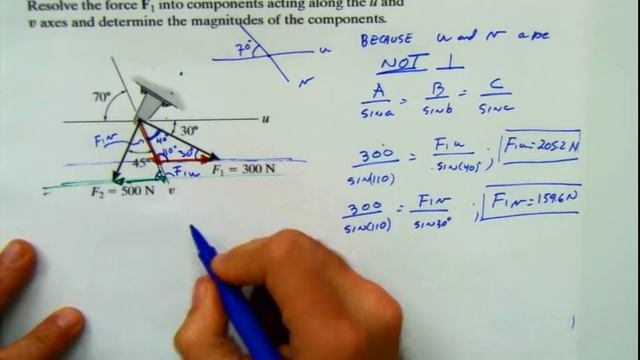 Resolve the force F₁ into components acting along the u and
v axes and determine the magnitudes of the components.
70° u v
BECAUSE u and v are
NOT ⊥
A/sin a = B/sin b = C/sin c
70°
u
F1v
40°
30°
110° 30°
45°
F1u
F₁ = 300 N
F₂ = 500 N v
300/sin(110) = F1u/sin(40°) ; F1u=205.2 N
300/sin(110) = F1v/sin30° ; F1v=159.6 N